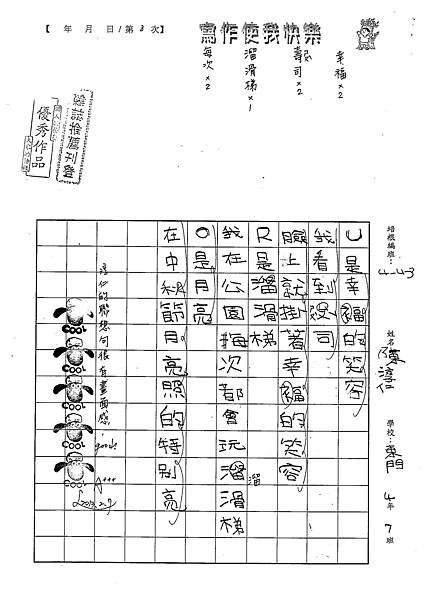 【 年 月 日/第3次】
寫作使我快樂
幸福×2
壽司×2
溜滑梯×1
每次×2
雜誌推薦刊登
優秀作品
培根編班：4-43
姓名：陳淳仁
學校：東門
4年7班
U是幸福的笑容
我看到壽司
臉上就掛著幸福的笑容
R是溜滑梯
我在公園每次都會玩溜滑梯
溜
O是月亮
在中秋節月亮照的特別亮
淳仁的聯想句很有畫面感。
good!
A+++